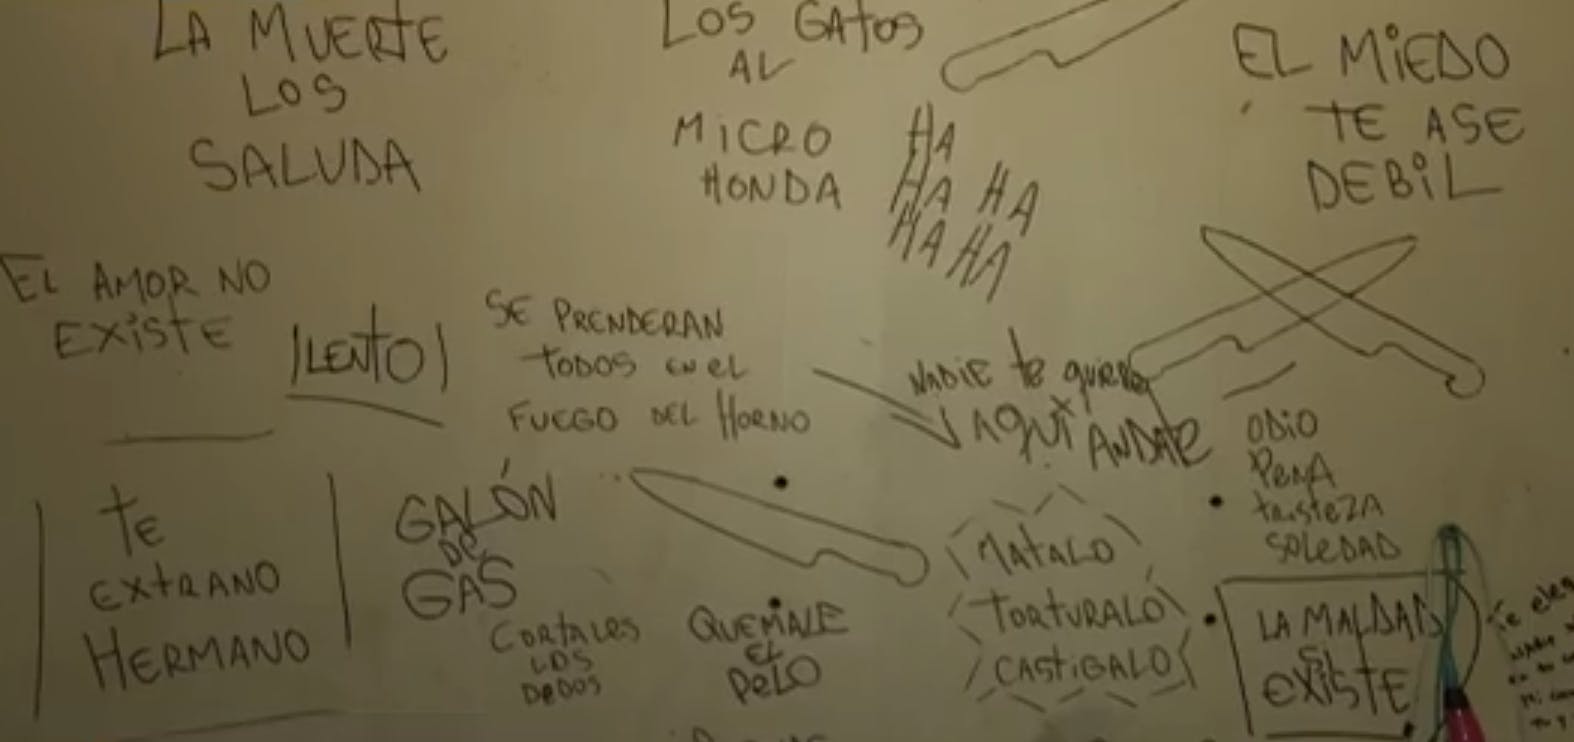 LA MUERTE
LOS
SALUDA
LOS GATOS
AL
MICRO
HONDA
HA
HA HA
HA HA
EL MIEDO
TE ASE
DEBIL
EL AMOR NO
EXISTE
LENTO
SE PRENDERAN
TODOS EN EL
FUEGO DEL HORNO
NADIE te quiere
AQUI ANDATE
ODIO
PENA
tristeZA
SOLEDAD
TE
EXTRANO
HERMANO
GALÓN
DE
GAS
CORTALES
LOS
DEDOS
QUEMALE
EL
PELO
MATALO
TORTURALO
CASTIGALO
LA MALDAD
SI
EXISTE